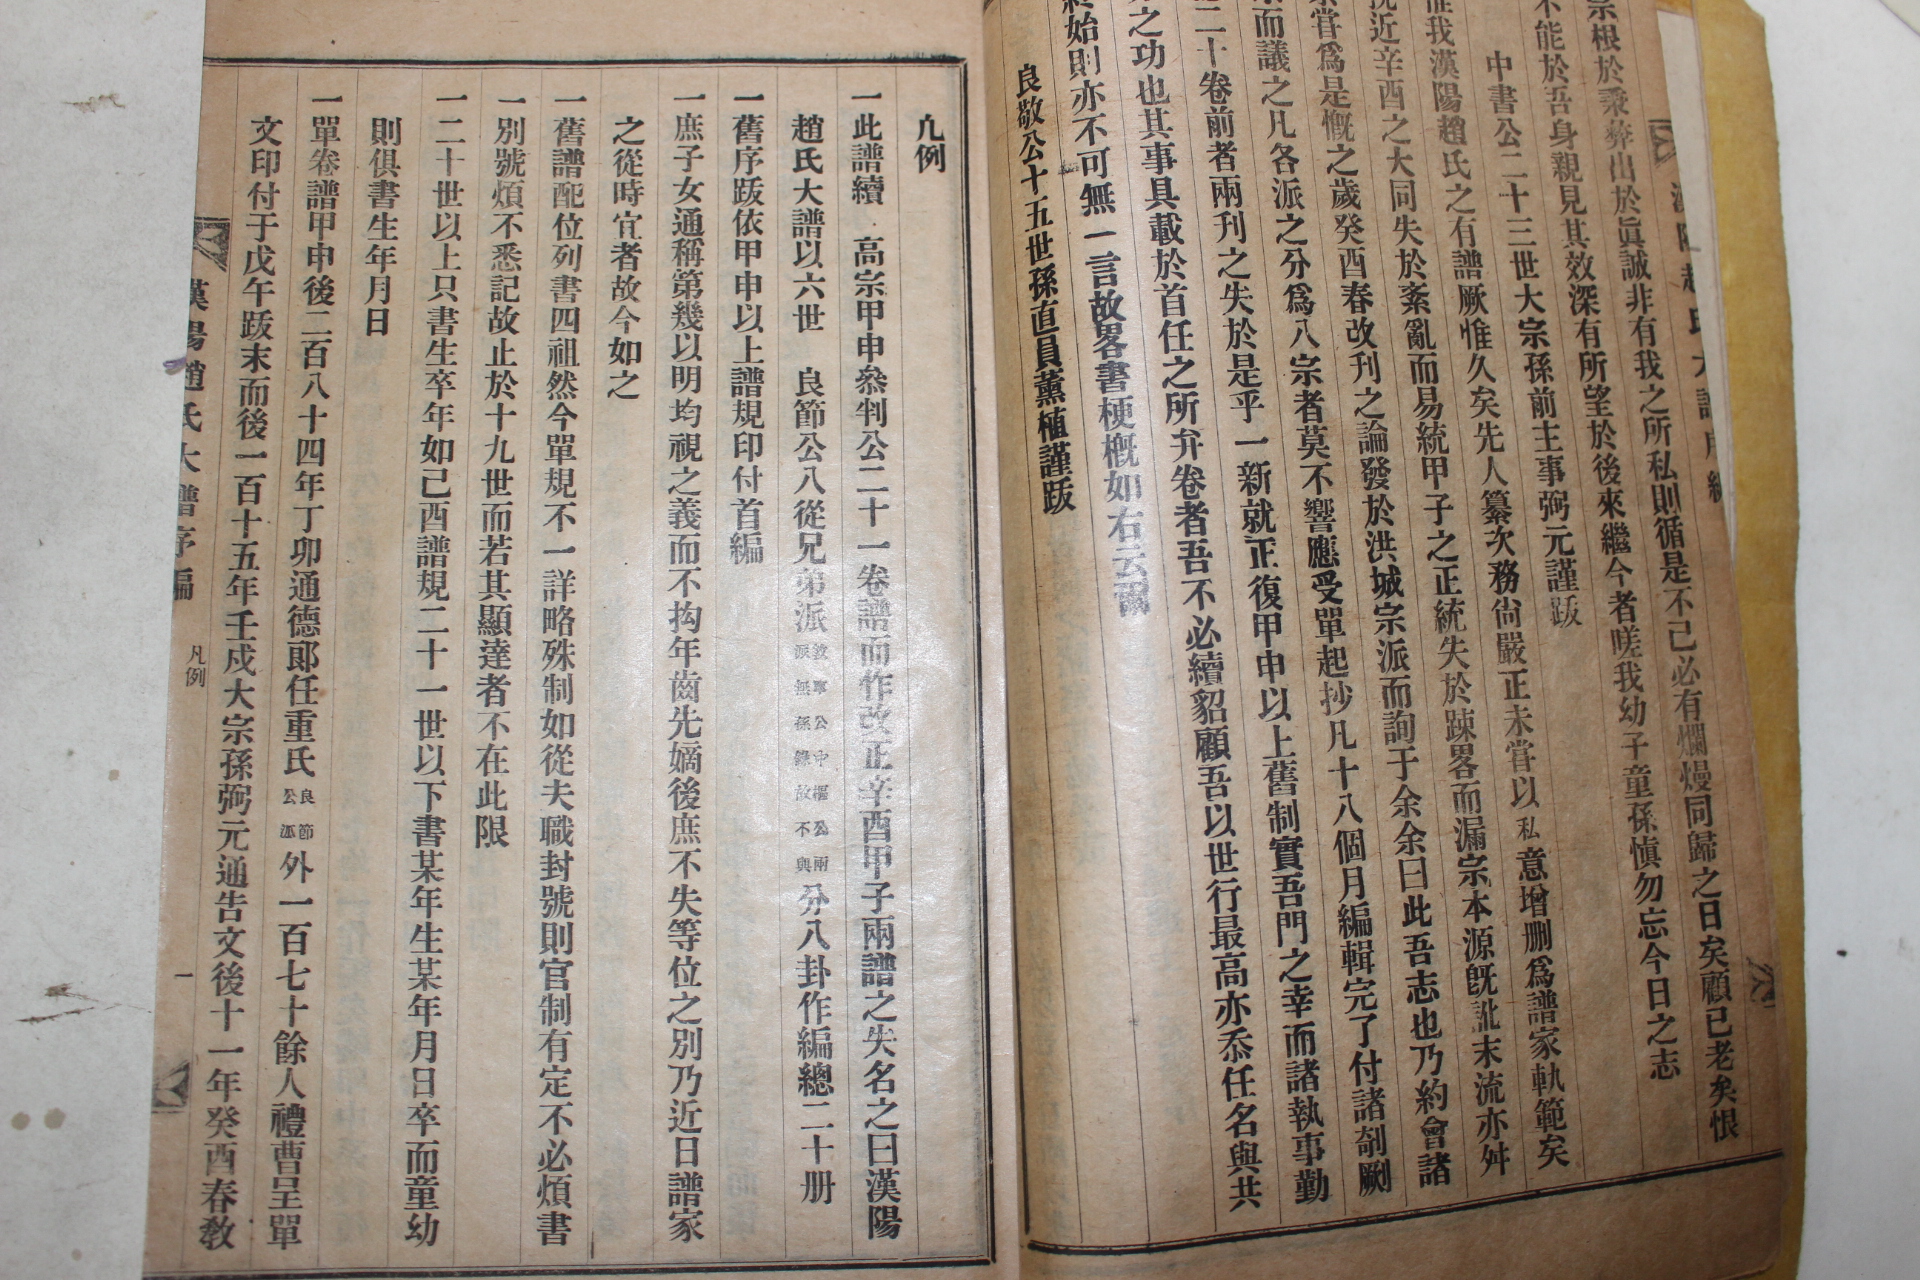 宗根於秉彝出於眞誠非有我之所私則循是不已必有爛熳同歸之日矣顧已老矣恨
不能於吾身親見其效深有所望於後來繼今者嗟我幼子童孫愼勿忘今日之志
中書公二十三世大宗孫前主事弼元謹跋
惟我漢陽趙氏之有譜厥惟久矣先人纂次務尙嚴正未嘗以私意增删爲譜家軌範矣
近辛酉之大同失於紊亂而易統甲子之正統失於踈畧而漏宗本源旣訛末流亦舛
嘗爲是慨之歲癸酉春改刊之論發於洪城宗派而詢于余余曰此吾志也乃約會諸
而議之凡各派之分爲八宗者莫不響應受單起抄凡十八個月編輯完了付諸剞劂
二十卷前者兩刊之失於是乎一新就正復甲申以上舊制實吾門之幸而諸執事勤
之功也其事具載於首任之所弁卷者吾不必續貂顧吾以世行最高亦忝任名與共
終始則亦不可無一言故畧書梗槪如右云爾
良敬公十五世孫直員薰植謹跋
凡例
一此譜續 高宗甲申叅判公二十一卷譜而作改正辛酉甲子兩譜之失名之曰漢陽
趙氏大譜以六世 良節公八從兄弟派敎事公中樞公兩派無孫錄故不與分八卦作編總二十册
一舊序跋依甲申以上譜規印付首編
一庶子女通稱第幾以明均視之義而不拘年齒先嫡後庶不失等位之別乃近日譜家
之從時宜者故今如之
一舊譜配位列書四祖然今單規不一詳略殊制如從夫職封號則官制有定不必煩書
一別號煩不悉記故止於十九世而若其顯達者不在此限
一二十世以上只書生卒年如己酉譜規二十一世以下書某年生某年月日卒而童幼
則俱書生年月日
一單卷譜甲申後二百八十四年丁卯通德郞任重氏良節公派外一百七十餘人禮曹呈單
文印付于戊午跋末而後一百十五年壬戌大宗孫弼元通告文後十一年癸酉春敎
漢陽趙氏大譜序編 凡例 一